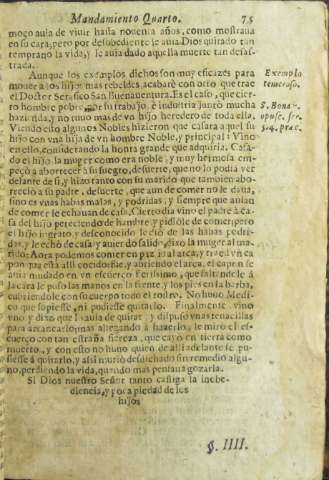 Mandamiento Quarto. 75
moço auia de viuir hasta nouenta años, como mostraua
en su cara, pero por desobediente le auia Dios quitado tan
temprano la vida, y le auia dado aquella muerte tan desas-
trada.
Aunque los exemplos dichos son muy eficazes para
mouer a los hijos mas rebeldes, acabarè con otro que trae
el Doctor Serafico San Buenauentura. Es el caso, que cier-
to hombre pobre, por su trabajo, è industria juntò mucha
hazienda, y no tuuo mas de vn hijo heredero de toda ella.
Viendo esto algunos Nobles hizieron que casara aquel su
hijo con vna hija de vn hombre Noble, y principal: Vino
en ello, considerando la honra grande que adquiria. Casa-
do el hijo la muger como era noble, y muy hermosa em-
peçò a aborrecer à su suegro, desuerte, que no lo podia ver
delante de si, y hizo tanto con su marido que tambien abo-
reciò a su padre, desuerte, que aun de comer no le daua,
sino es vnas habas malas, y podridas, y siempre que auian
de comer le echauan de casa. Cierto dia vino el padre à ca-
sa del hijo pereciendo de hambre, y pidiòle de comer, pero
el hijo ingrato, y desconocido le echò de las habas podri-
das, y le echò de casa, y auiendo salido, dixo la muger al ma-
rido: Aora podemos comer en paz, id al arca, y traed vn ca
pon que està alli
auia mudado en vn
la cara le puso las manos en la frente, y los pies en la barba,
cubriendole con su cuerpo todo el rostro. No huuo Medi-
co que supiesse, ni pudiesse quitarlo. Finalmente vino
vno, y dixo que le auia de quitar, y dispuso vnas tenacillas
para arrancarlo, mas allegando à hazerlo, le mirò el es-
cuerço con tan estraña fiereza, que cayò en tierra como
muerto, y con esto no huuo quien de alli adelante se pu-
siesse à quitarlo, y assi muriò desdichado sin remedio algu-
no, perdiendo la vida, quando mas pensaua gozarla.
Si Dios nuestro Señor tanto castiga la inobe-
diencia, y poca piedad de los
hijos
§. IIII.
Exemplo
temeroso.
S. Bona-
opusc.